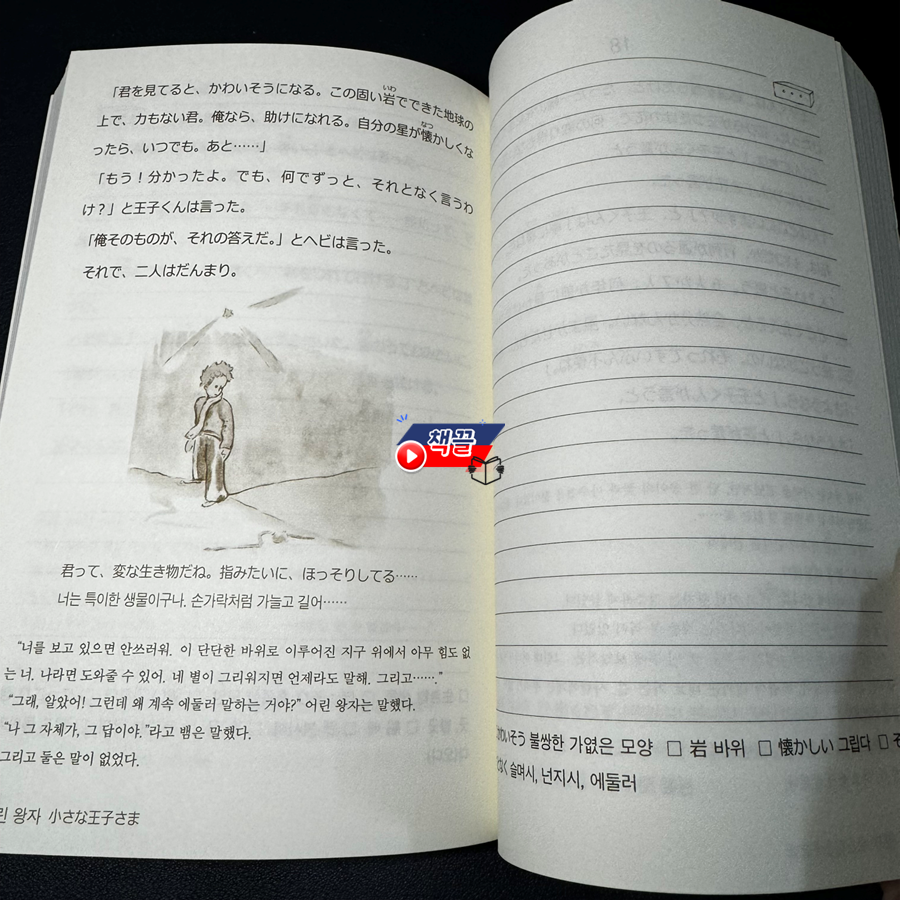 「君を見てると、かわいそうになる。この固い岩でできた地球の
上で、力もない君。俺なら、助けになれる。自分の星が懐かしくな
ったら、いつでも。あと……」
「もう！分かったよ。でも、何でずっと、それとなく言うわ
け？」と王子くんは言った。
「俺そのものが、それの答えだ。」とヘビは言った。
それで、二人はだんまり。
君って、変な生き物だね。指みたいに、ほっそりしてる……
너는 특이한 생물이구나. 손가락처럼 가늘고 길어……
“너를 보고 있으면 안쓰러워. 이 단단한 바위로 이루어진 지구 위에서 아무 힘도 없
는 너. 나라면 도와줄 수 있어. 네 별이 그리워지면 언제라도 말해. 그리고…….”
“그래, 알았어! 그런데 왜 계속 에둘러 말하는 거야?” 어린 왕자는 말했다.
“나 그 자체가, 그 답이야.”라고 뱀은 말했다.
그리고 둘은 말이 없었다.
린 왕자 小さな王子さま
책끌
いそう 불쌍한 가엾은 모양 □ 岩 바위 □ 懐かしい 그립다 □
なく 슬며시, 넌지시, 에둘러